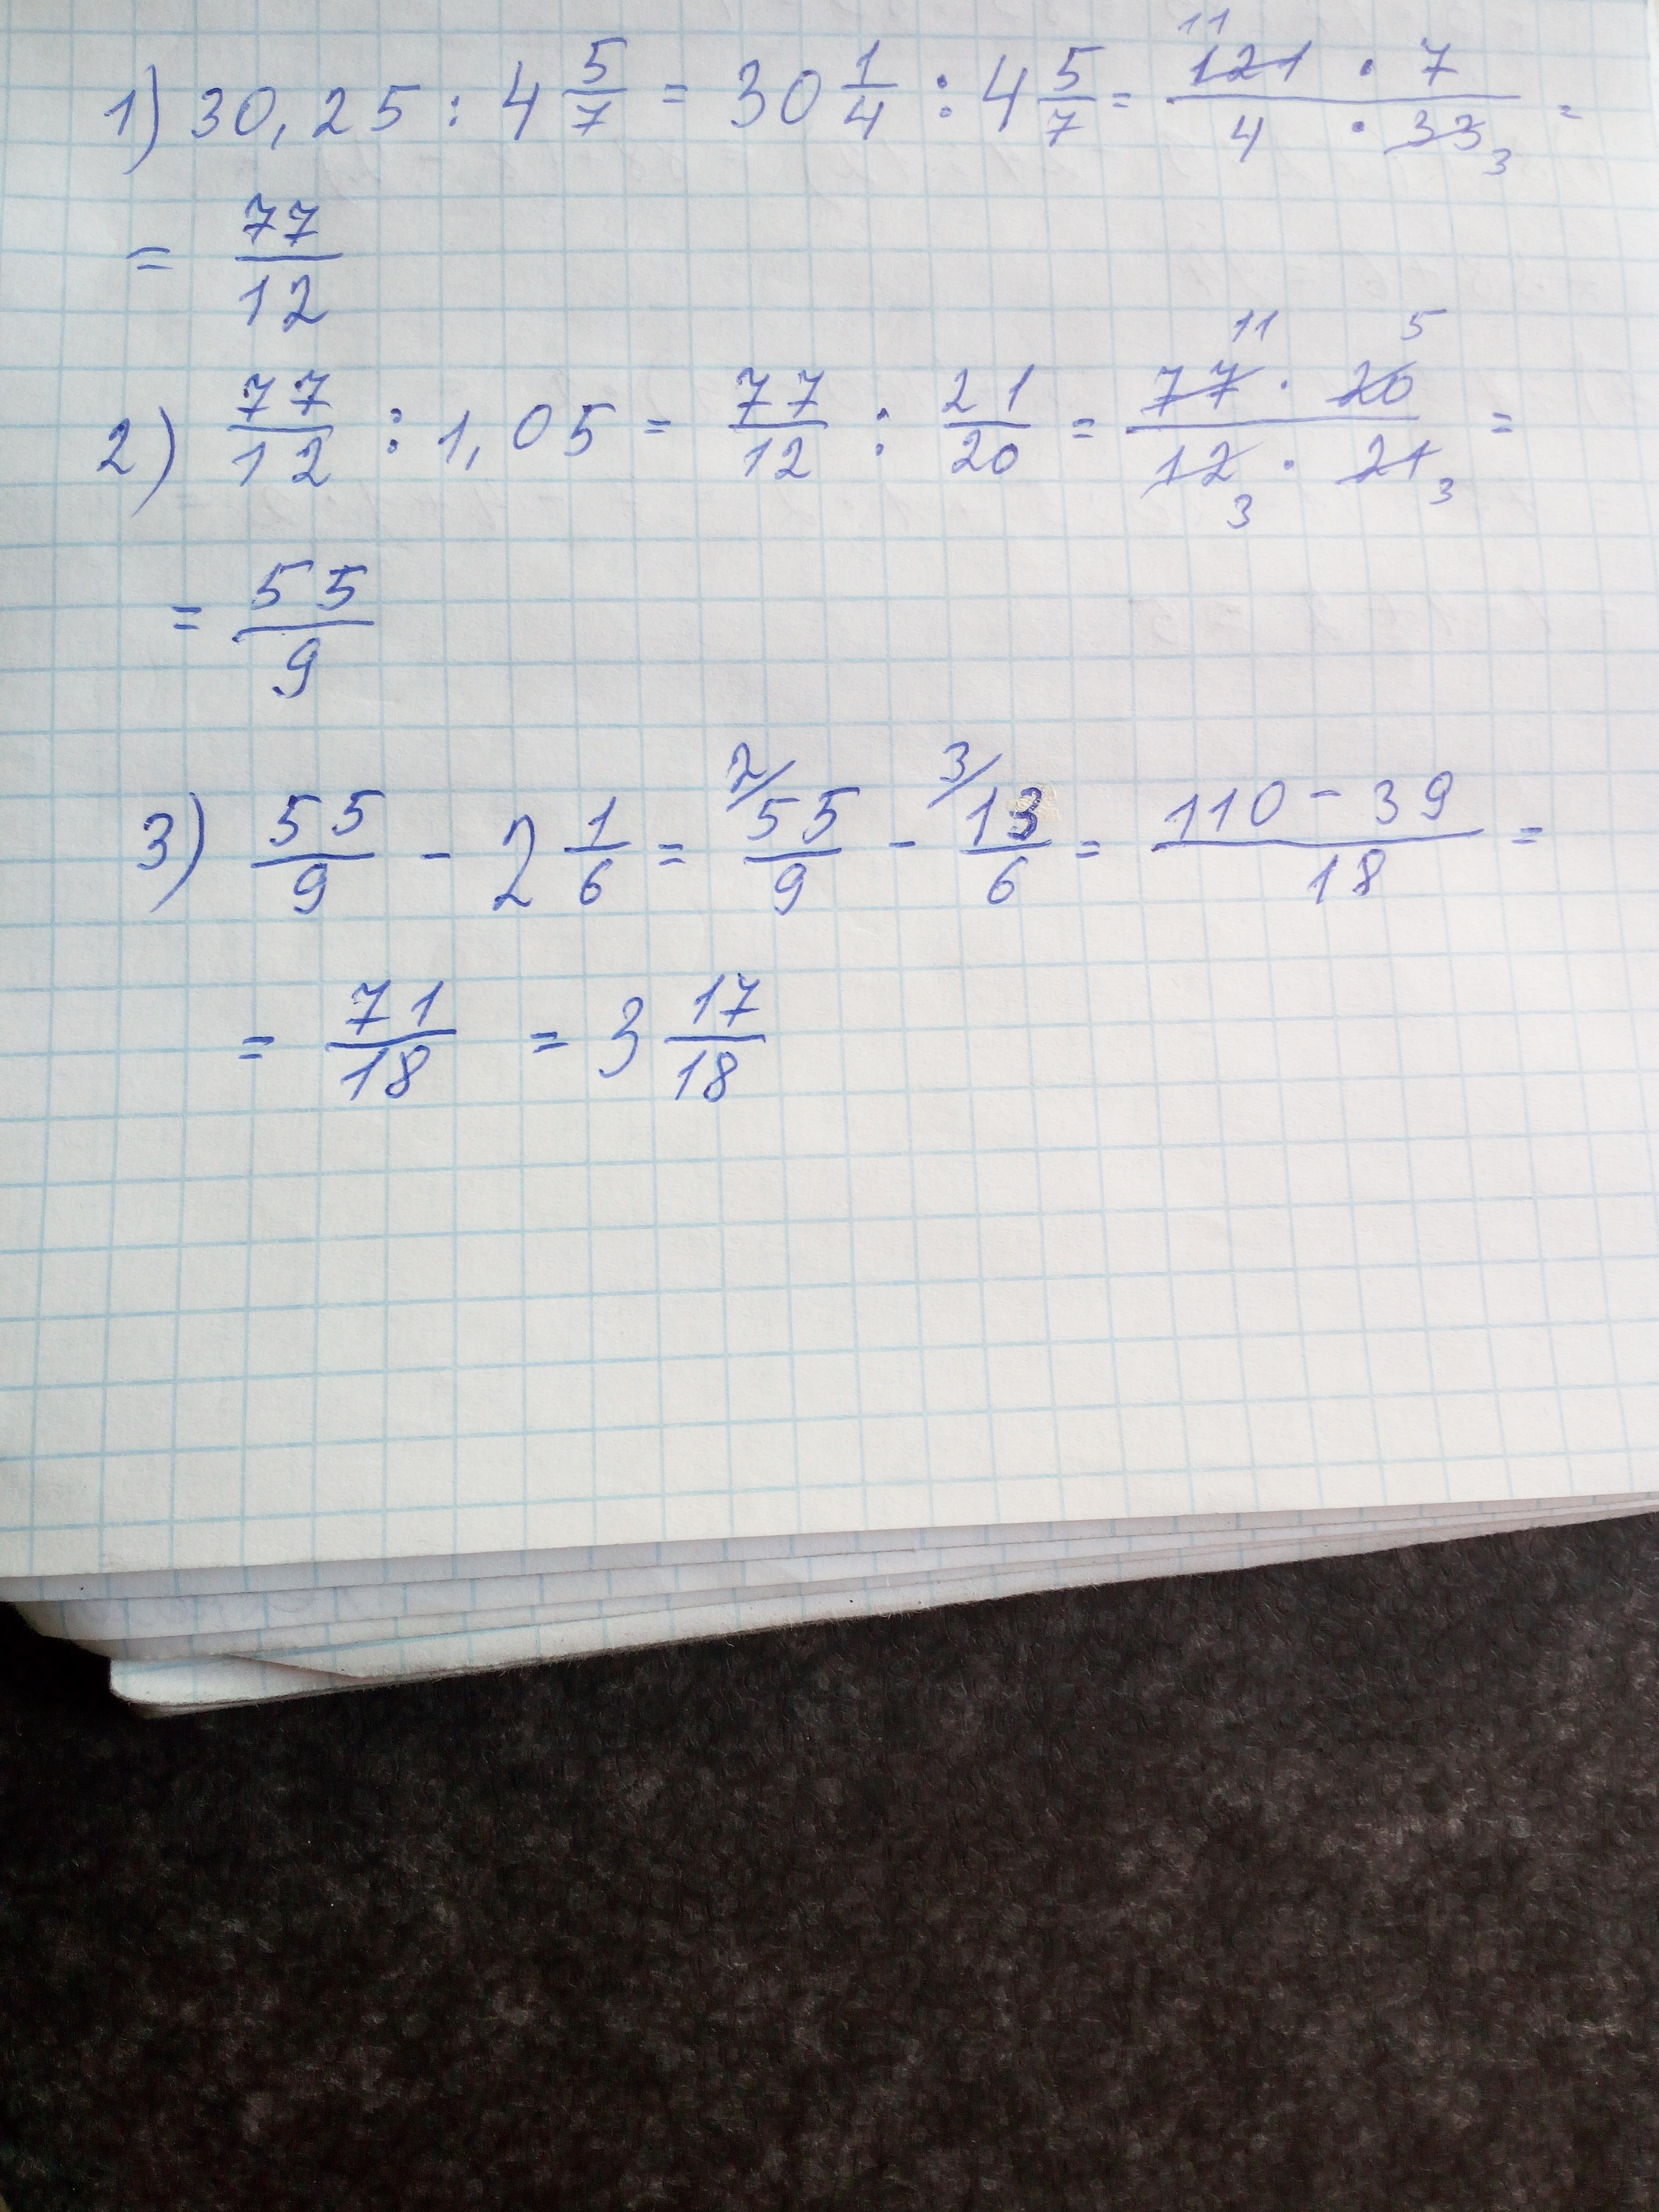 1) 30,25 : 4 5/7 = 30 1/4 : 4 5/7 = 121 11 · 7 / 4 · 33 3 =
= 77/12
2) 77/12 : 1,05 = 77/12 : 21/20 = 77 11 · 20 5 / 12 3 · 21 3 =
= 55/9
3) 55/9 - 2 1/6 = 2/ 55/9 - 3/ 13/6 = 110 - 39 / 18 =
= 71/18 = 3 17/18